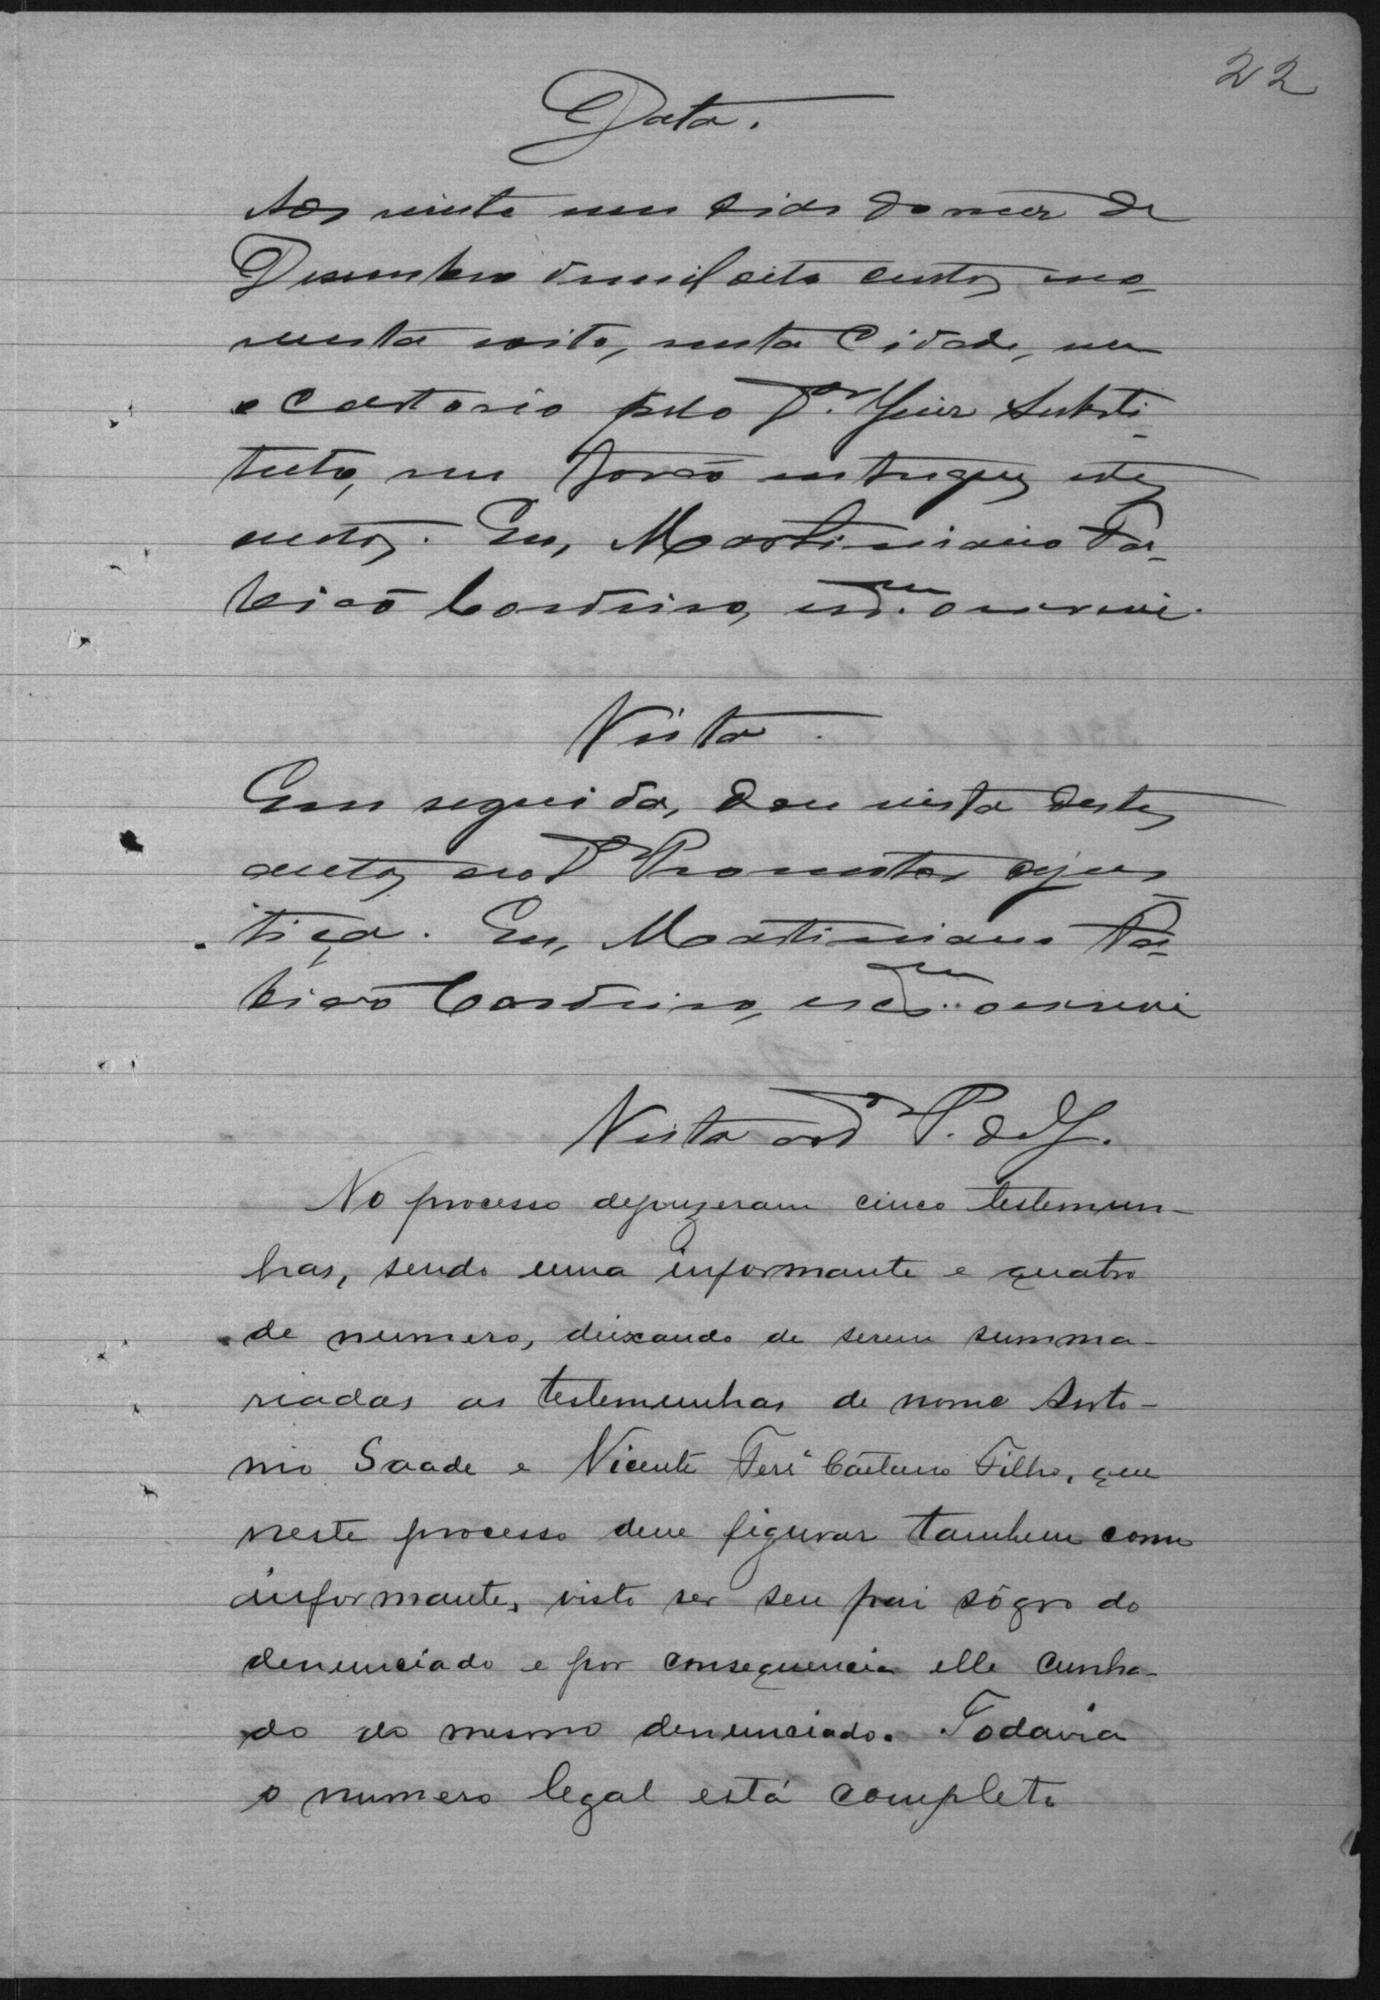 22
Data.
Aos vinte um dias do mez de
Desembro de mil oito centos no-
venta e oito, nesta Cidade, em
o Cartorio pelo Dr. Juiz Substi-
tuto, me forão entregues estes
autos. Eu, Martimiano Fa-
bião Cordeiro, escm. o escrevi.
Vista.
Em seguida, dou vista destes
autos ao Dr Promotor de jus-
tiça. Eu, Martimiano Fa-
bião Cordeiro, escm. o escrevi
Vista ao Dr P. da J.
No processo depuzeram cinco testemun-
has, sendo uma informante e quatro
de numero, deixando de serem summa-
riadas as testemunhas de nome Anto-
nio Saade e Vicente Caetano Filho, que
neste processo deve figurar tambem como
informante, visto ser seu pai sôgro do
denunciado e por consequencia elle cunha-
do do mesmo denunciado. Todavia
o numero legal está completo